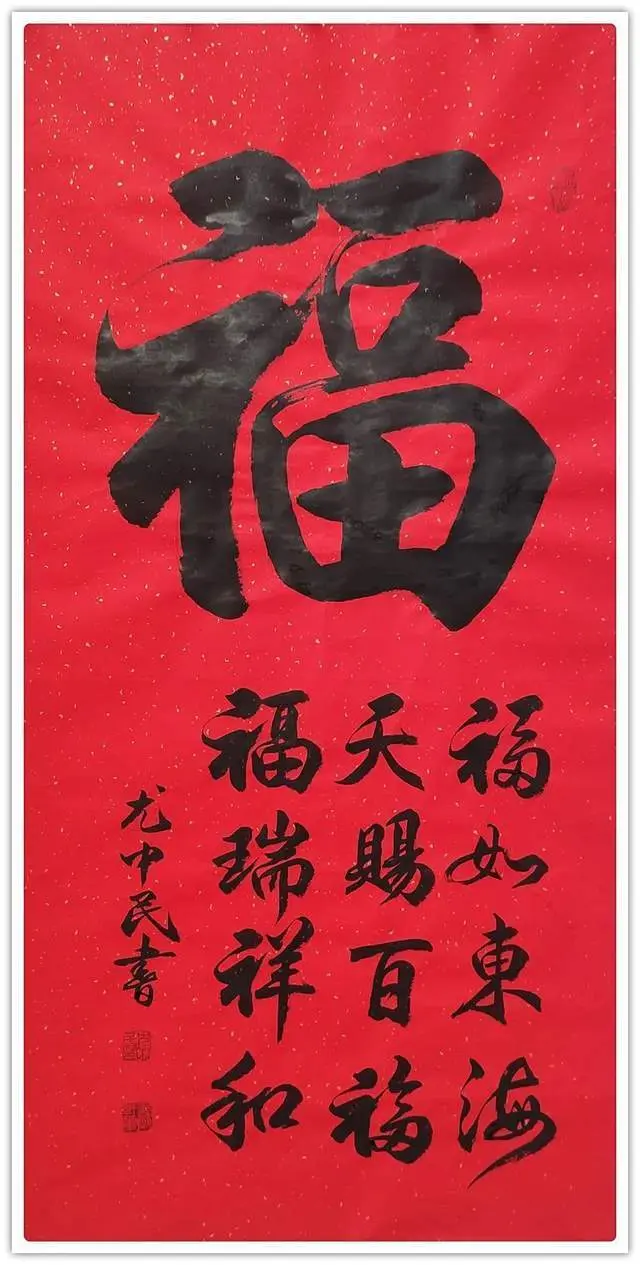 福
福如東海
天賜百福
福瑞祥和
尤中民書